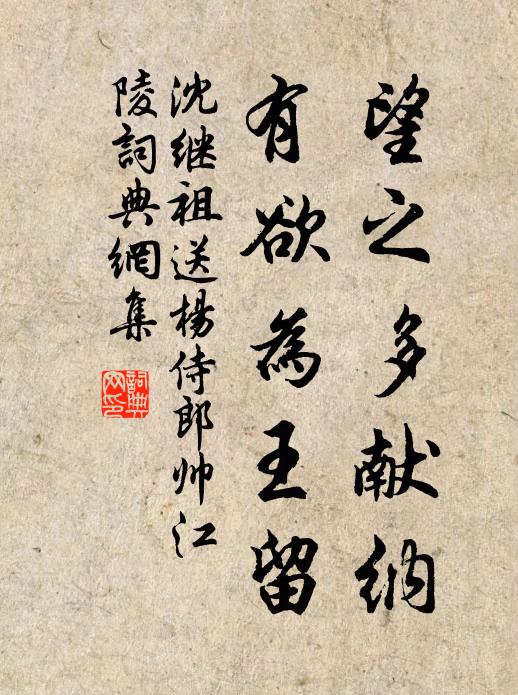 望之多献纳
有欲為王留
沈继祖送楊侍郎帅江
陵詞典網集
詞典
网印